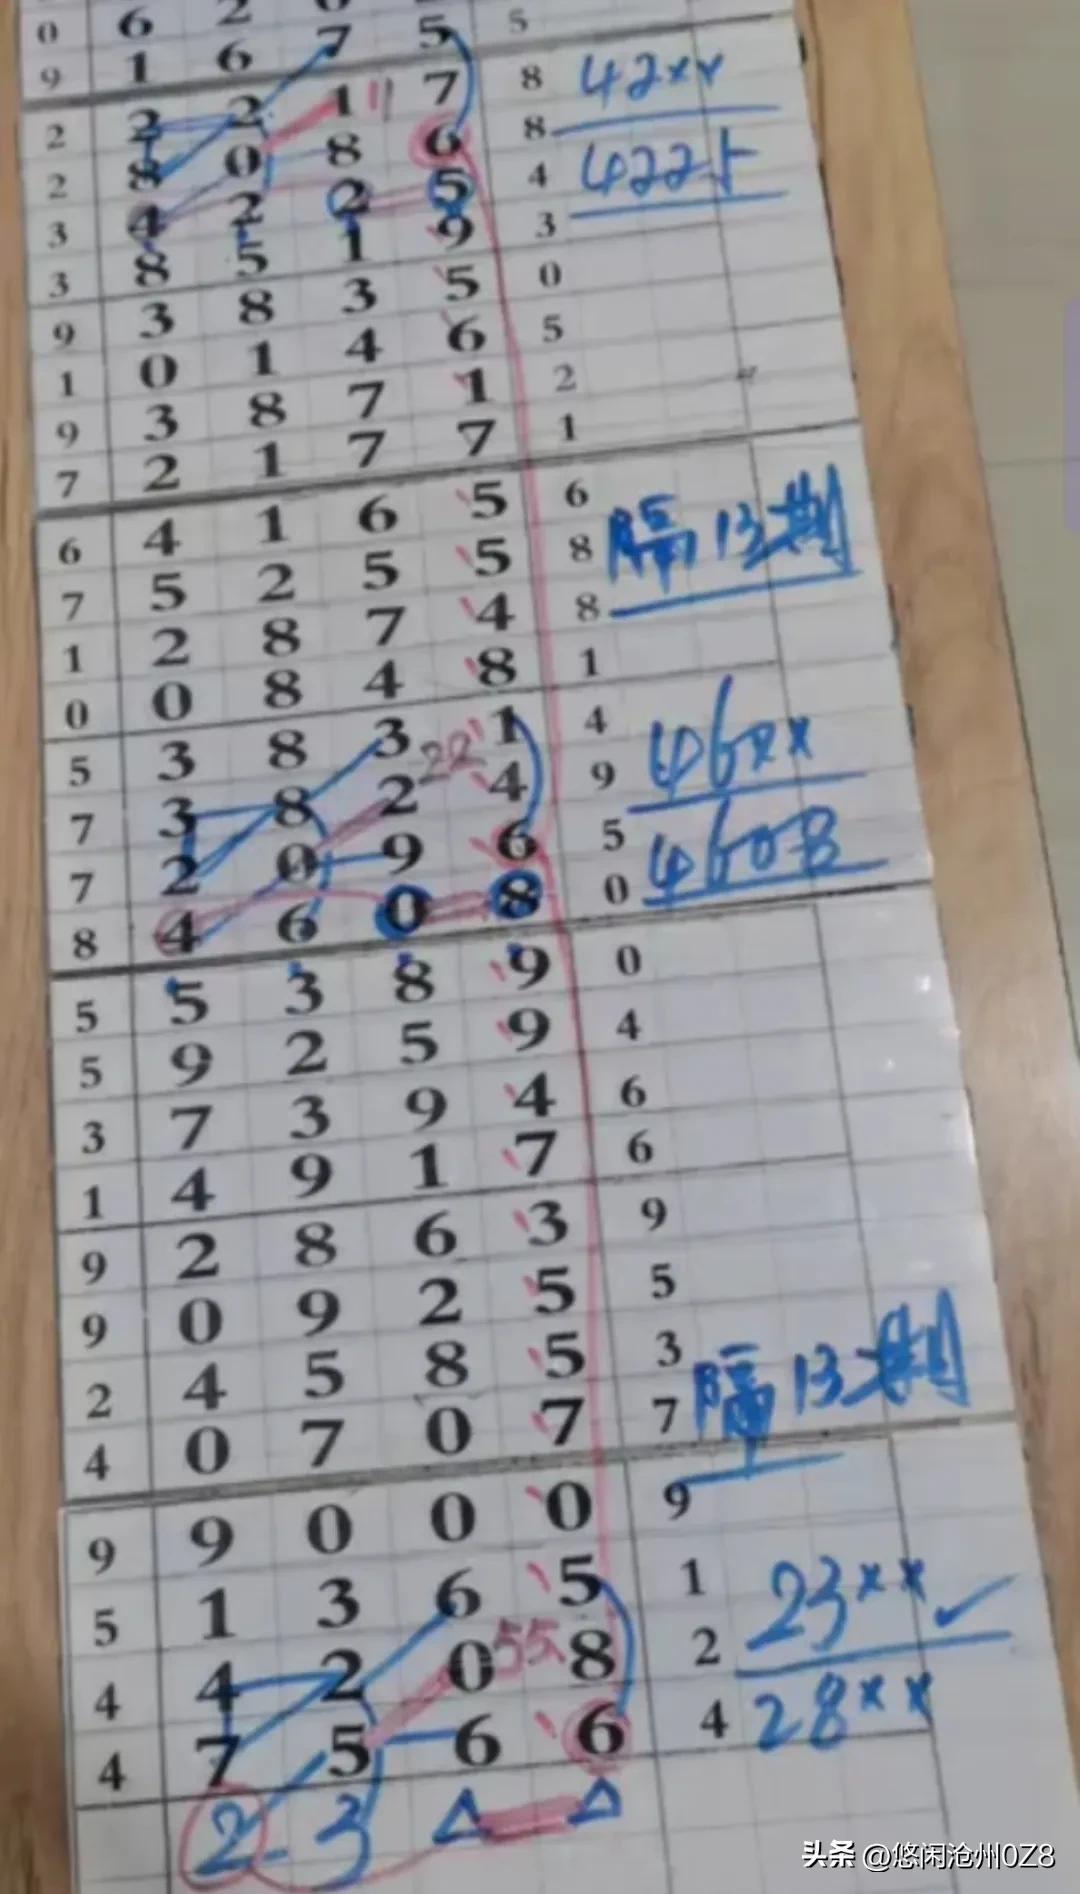 0 6 2
9 1 6 7 5 5
2 2 2 1 11 7 8 42××
2 8 0 8 6 8
3 4 2 2 5 4 4225
3 8 5 1 9 3
9 3 8 3 5 0
1 0 1 4 6 5
9 3 8 7 1 2
7 2 1 7 7 1
6 4 1 6 5 6
7 5 2 5 5 8 隔13期
1 2 8 7 4 8
0 0 8 4 8 1
5 3 8 3 22 1 4 46××
7 3 8 2 4 9
7 2 0 9 6 5 4608
8 4 6 0 8 0
5 5 3 8 9 0
5 9 2 5 9 4
3 7 3 9 4 6
1 4 9 1 7 6
9 2 8 6 3 9
9 0 9 2 5 5
2 4 5 8 5 3 隔13期
4 0 7 0 7 7
9 9 0 0 0 9
5 1 3 6 5 1 23××✓
4 4 2 0 55 8 2
4 7 5 6 6 4 28××
2-3 △ △
头条 @悠闲沧州0Z8